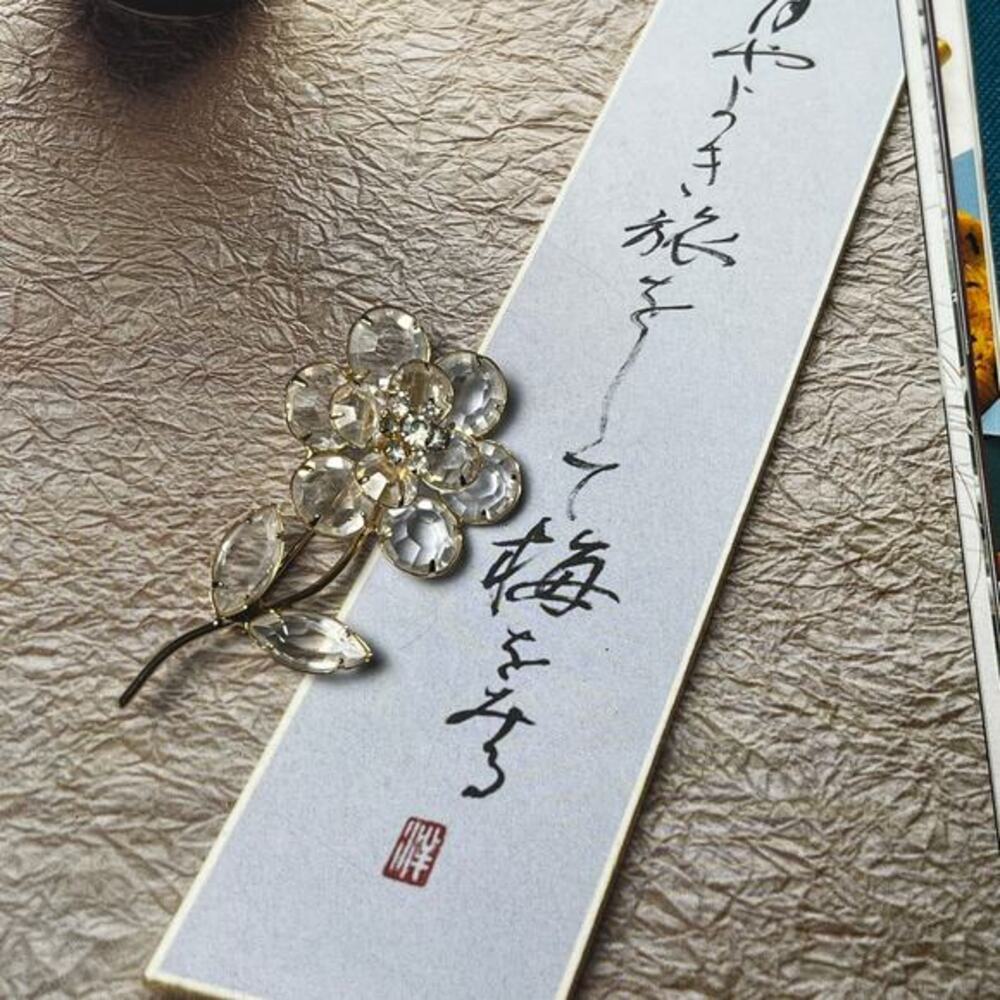 やよき旅をして梅をみる